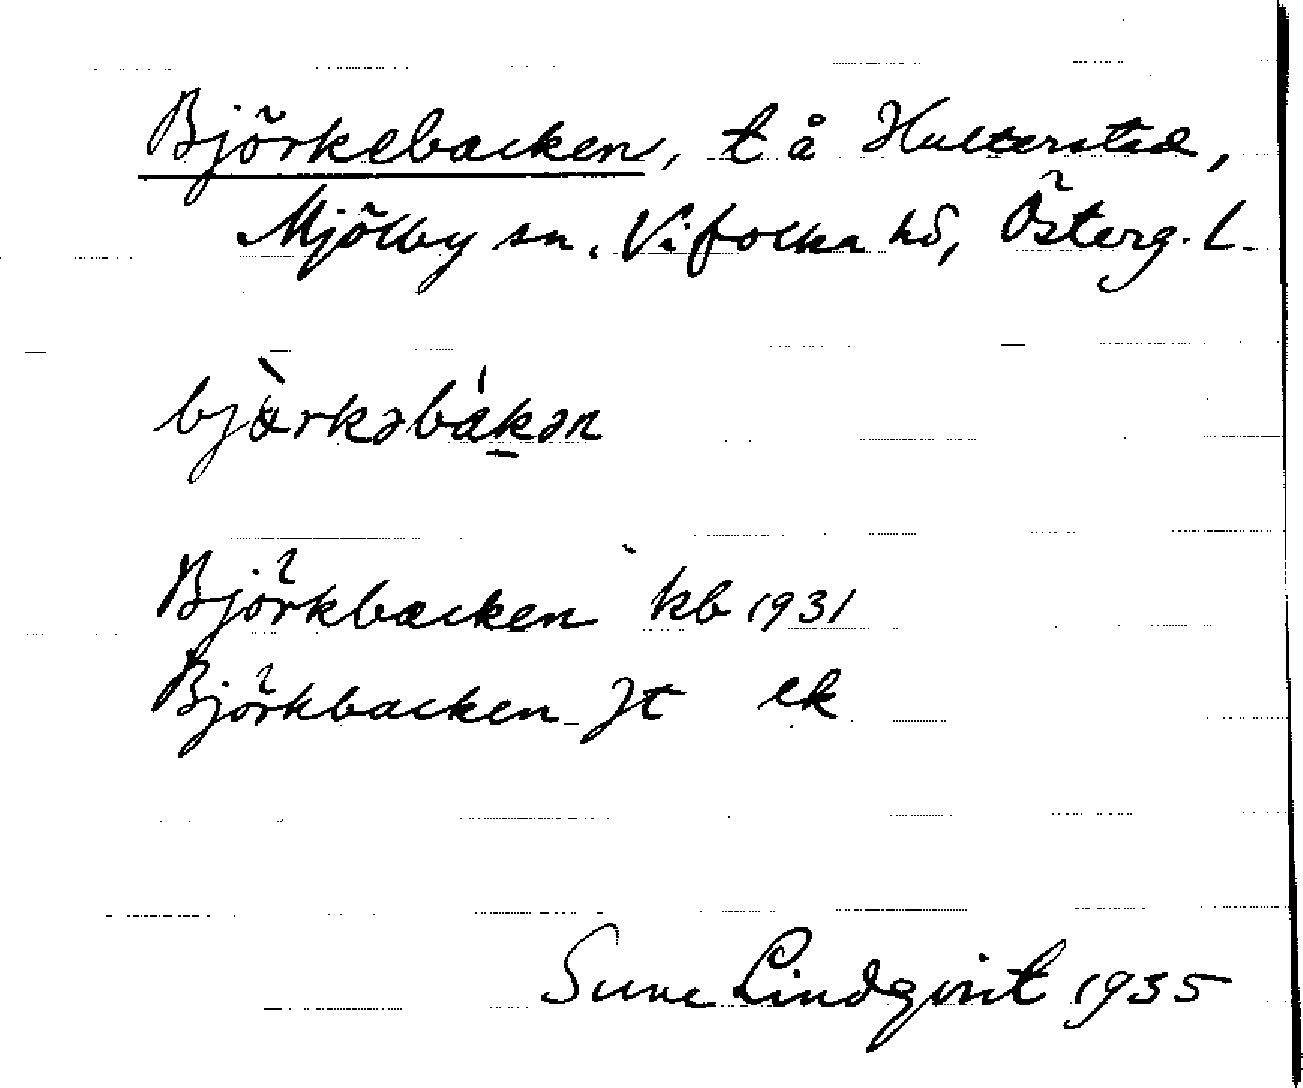 Björkebacken, t å Hulterstad,
Mjölby sn. Vifolka hd, Österg. L.
bjæ̀rkəbákən
Björkbacken kb 1931
Björkbacken Jt ek
Sune Lindqvist 1935